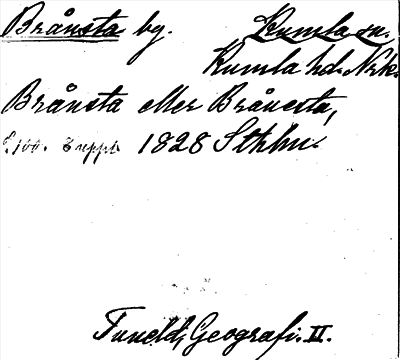 Brånsta by. Kumla sn.
Kumla hd. Nrk.
Brånsta eller Brånesta,
1828 Sthlm.
Tuneld, Geografi. II.